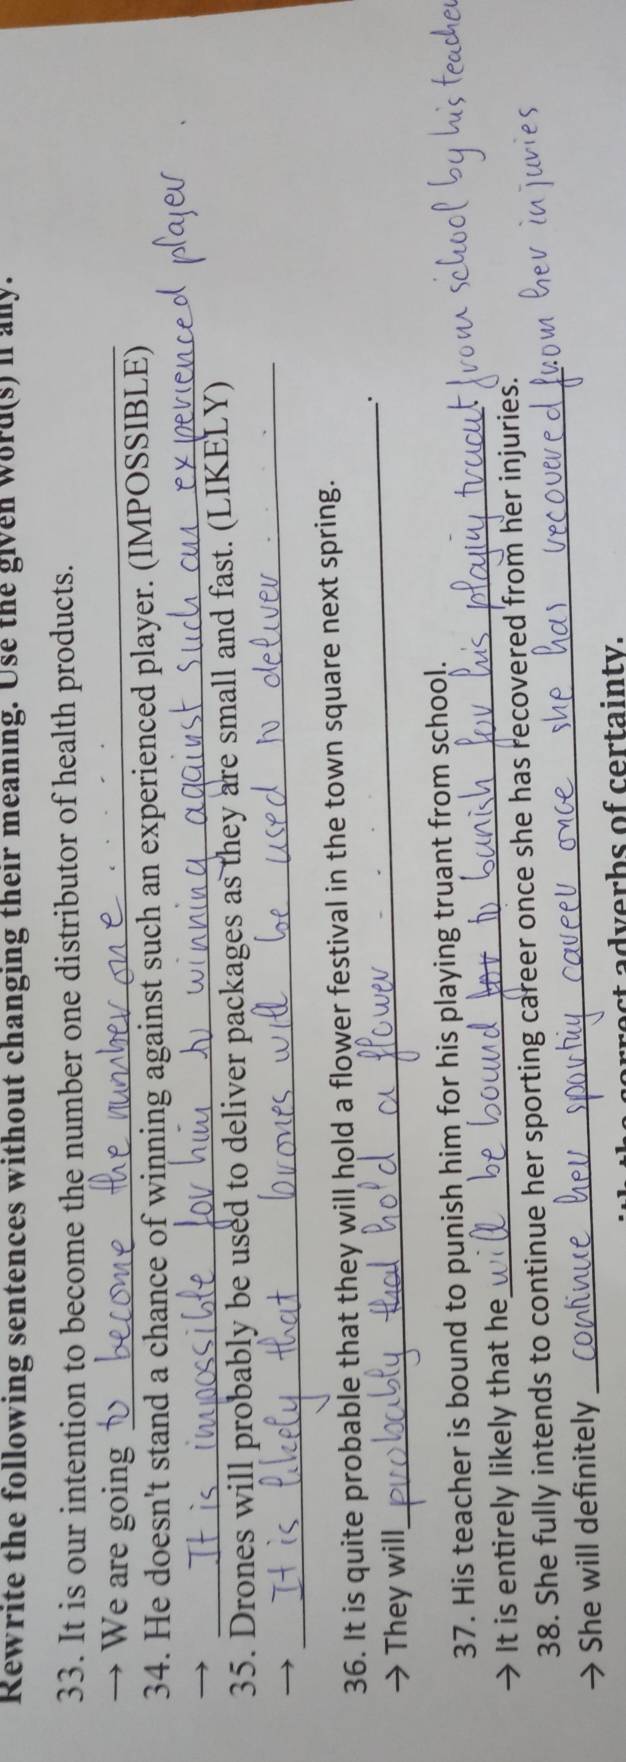 Rewrite the following sentences without changing their meaning. Use the given word(s) if any.
33. It is our intention to become the number one distributor of health products.
→ We are going to become the number one . . . .
34. He doesn't stand a chance of winning against such an experienced player. (IMPOSSIBLE)
→ It is impossible for him to winning against such an experienced player.
35. Drones will probably be used to deliver packages as they are small and fast. (LIKELY)
→ It is likely that Drones will be used to deliver . . . .
36. It is quite probable that they will hold a flower festival in the town square next spring.
→ They will probably that hold a flower . . . .
37. His teacher is bound to punish him for his playing truant from school.
→ It is entirely likely that he will be bound to bunish for his playing truant from school by his teacher
38. She fully intends to continue her sporting career once she has recovered from her injuries.
→ She will definitely continue her sporting career once she has recovered from her injuries
correct adverbs of certainty.